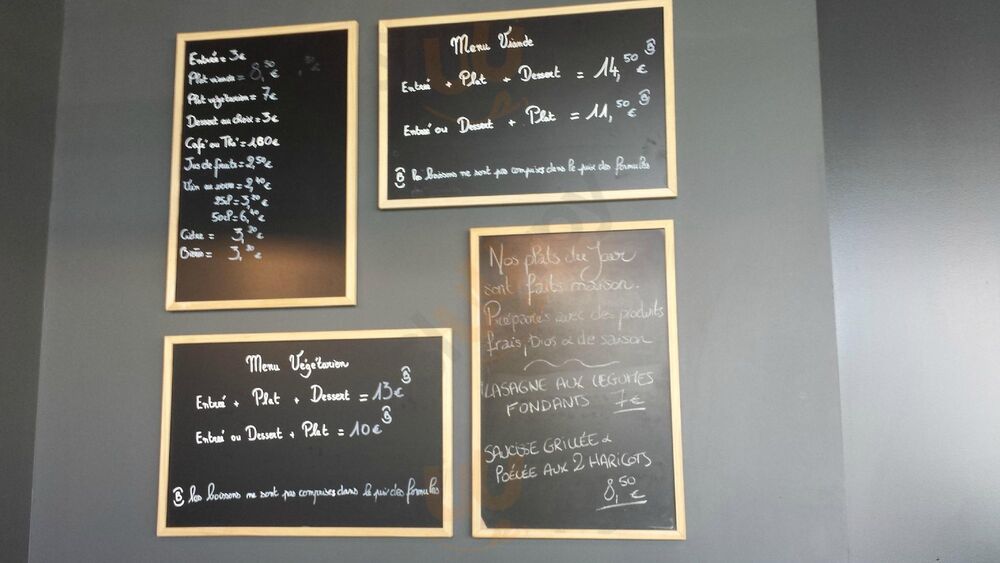 Entrée = 3€
Plat viande = 8,50 €
Plat végétarien = 7€
Dessert au choix = 3€
Café ou Thé = 1,80€
Jus de fruits = 2,50€
Vin au verre = 2,40€
25cl = 3,20€
50cl = 6,40€
Cidre = 3,20€
Bière = 3,20€
Menu Viande
Entrée + Plat + Dessert = 14,50€ B
Entrée ou Dessert + Plat = 11,50€ B
B les boissons ne sont pas comprises dans le prix des formules
Menu Végétarien
Entrée + Plat + Dessert = 13€ B
Entrée ou Dessert + Plat = 10€ B
B les boissons ne sont pas comprises dans le prix des formules
Nos plats du Jour
sont faits maison.
Préparés avec des produits
frais, bios & de saison
LASAGNE AUX LEGUMES
FONDANTS 7€
SAUCISSE GRILLÉE &
POÊLÉE AUX 2 HARICOTS
8,50€